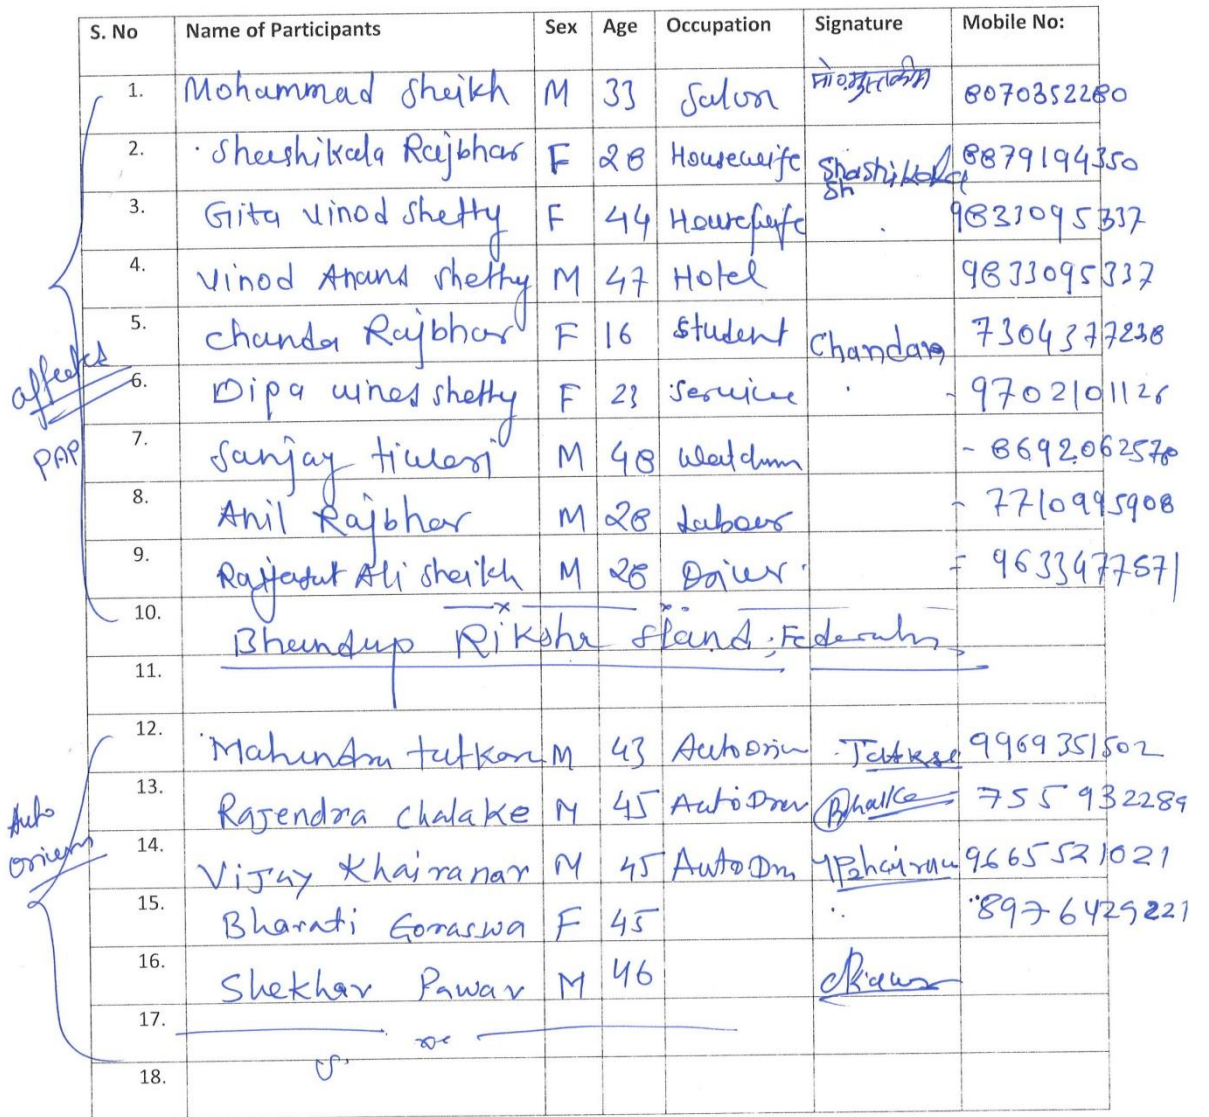 S. No Name of Participants Sex Age Occupation Signature Mobile No:
1. Mohammad Sheikh M 33 Salon 8070352280
2. Shashikala Rajbhar F 28 Housewife Shashikala 8879194350
Sh
3. Gita Vinod Shetty F 44 Housewife 9833095337
4. Vinod Anand Shetty M 47 Hotel 9833095337
5. Chanda Rajbhar F 16 Student Chandan 7304377238
affected
6. Dipa vinod shetty F 23 Service - 9702101126
PAP
7. Sanjay tiwari M 48 Watchman - 8692062570
8. Anil Rajbhar M 28 Labour - 7710995908
9. Ali Sheikh M 28 Driver - 9633477571
10. Bhandup Riksha Stand,
11.
12. Mahendra tatkare M 43 Auto Driv Tatkare 9969351502
13. Rajendra chalake M 45 Auto Driv 755932289
Auto
14. Vijay Khairanar M 45 Auto Drv 9665521021
Drivers
15. Bharati Goraswa F 45 8976429221
16. Shekhar Pawar M 46
17.
18.